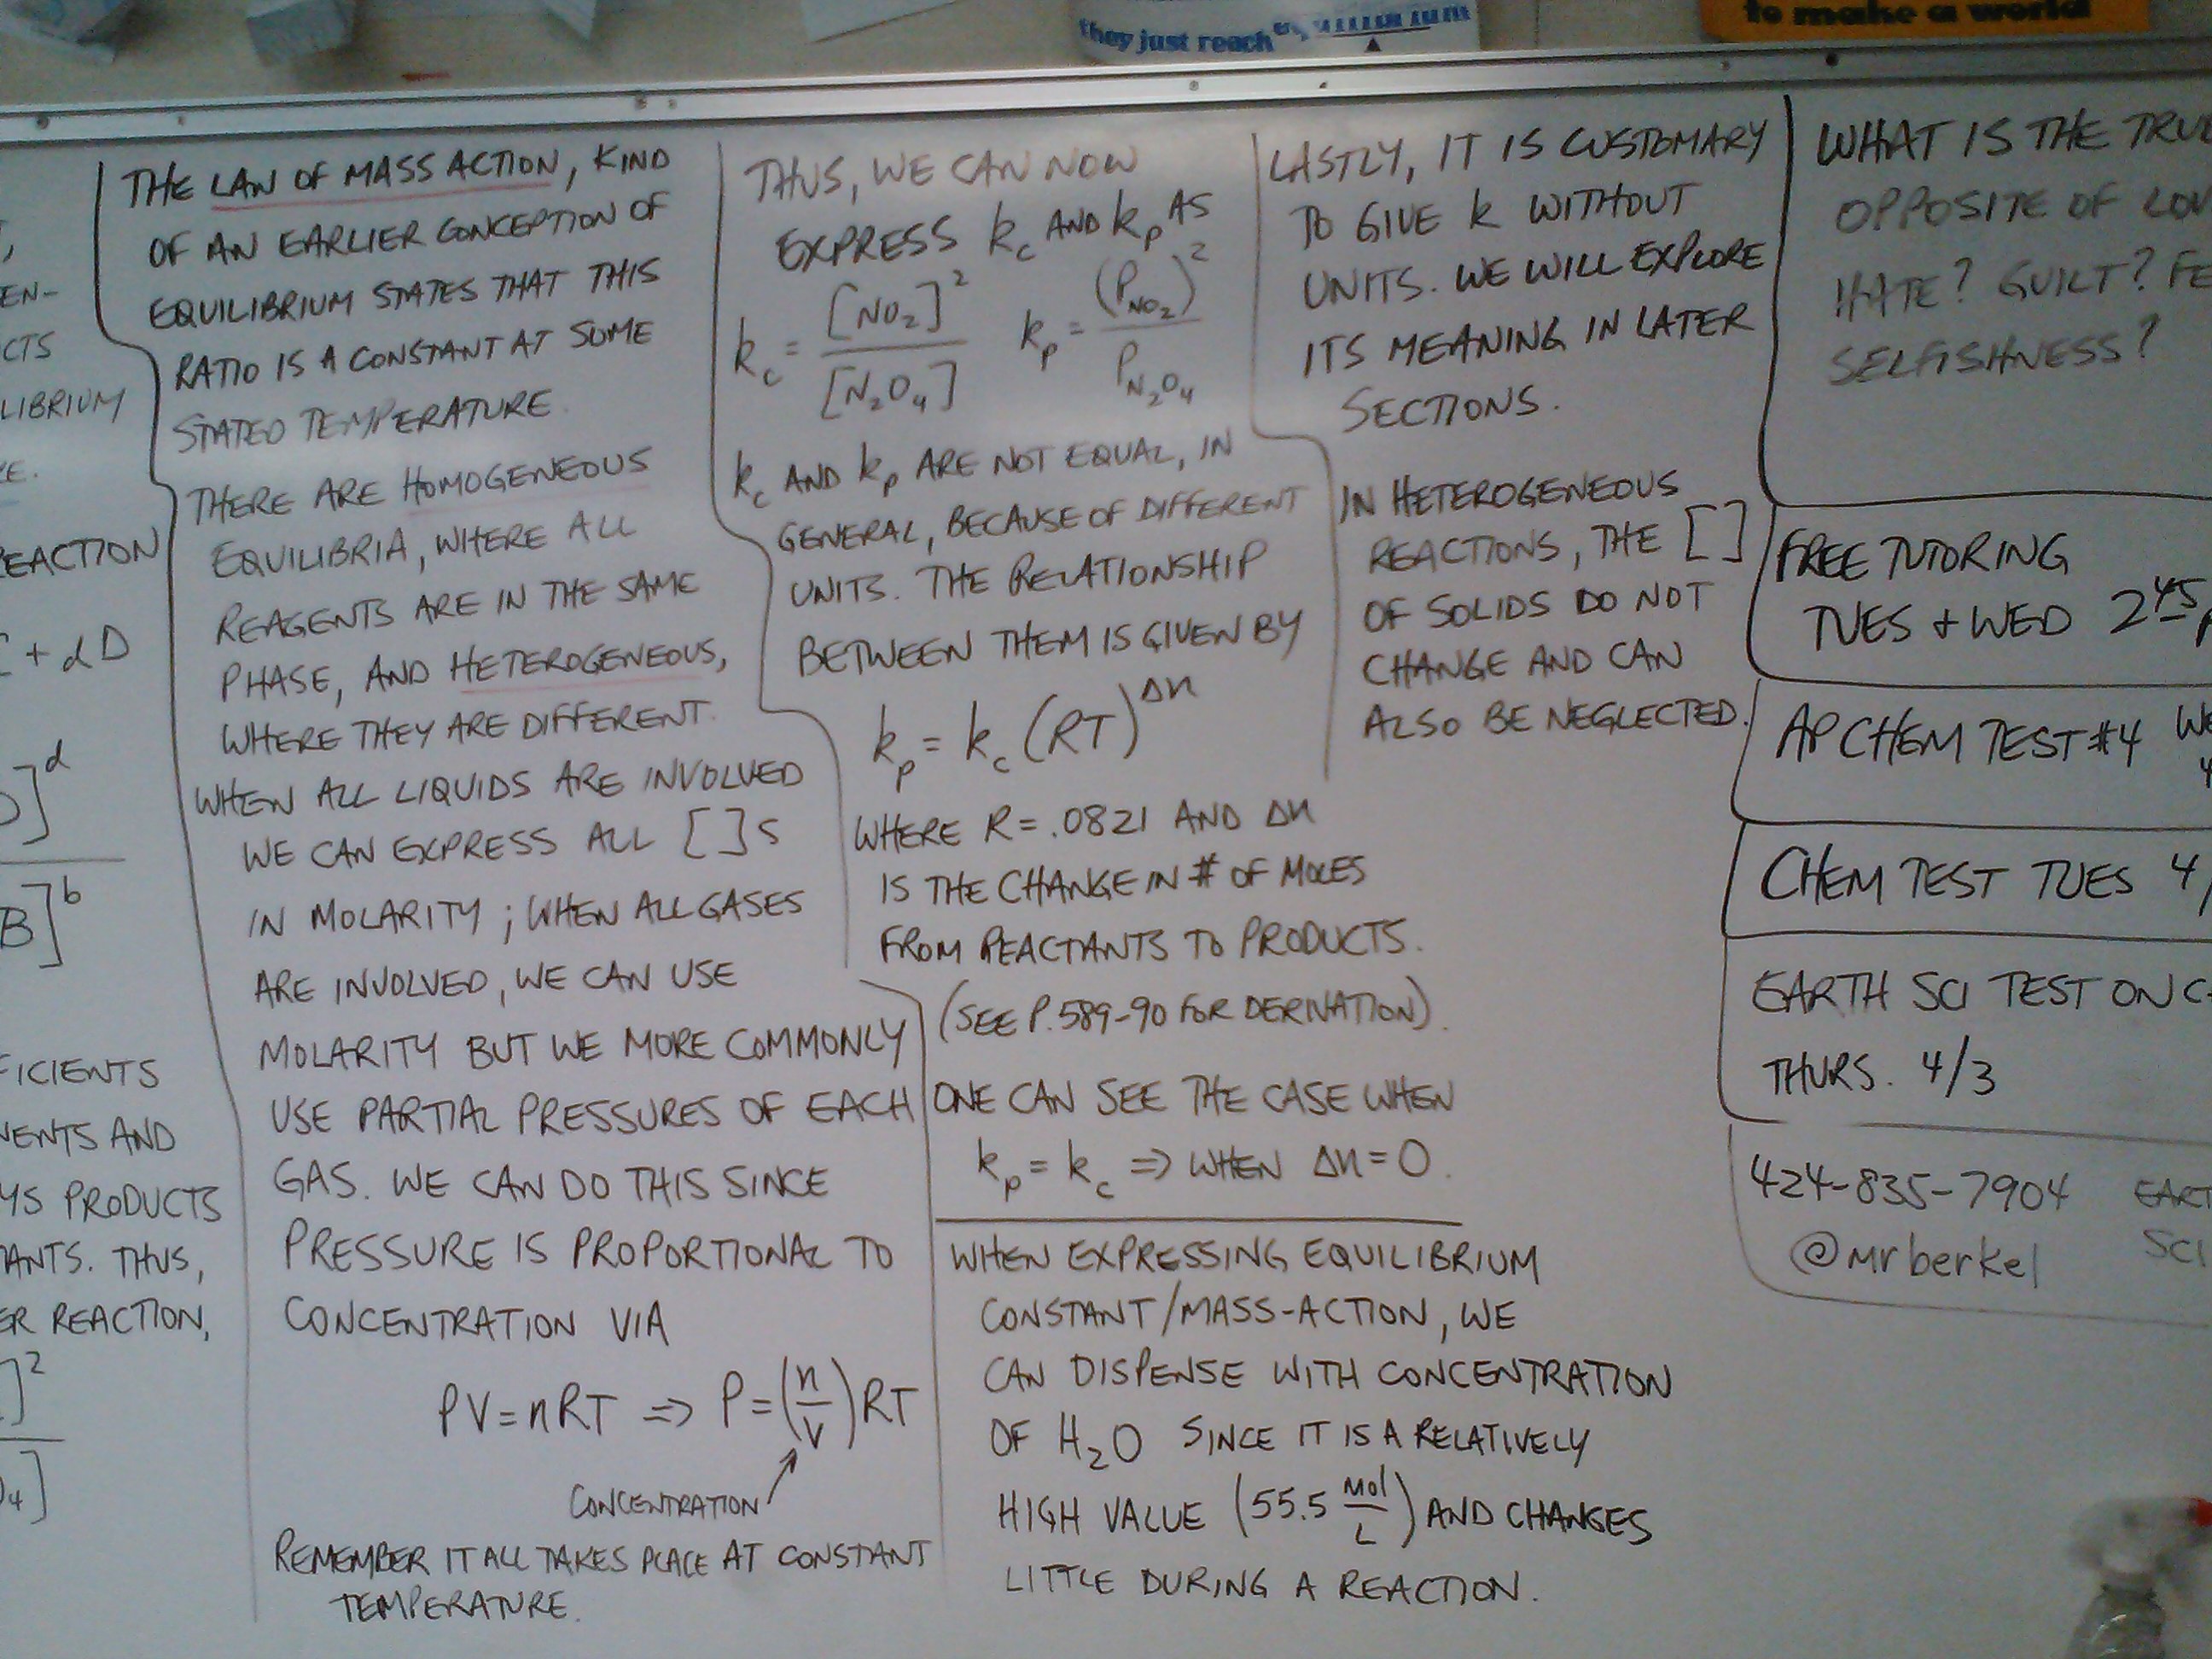 they just reach equilibrium
to make a world
EN-
CTS
LIBRIUM
E.
EACTION
+ dD
]d
B]b
FICIENTS
ENTS AND
YS PRODUCTS
ANTS. THUS,
ER REACTION,
]2
O4]
THE LAW OF MASS ACTION, KIND
OF AN EARLIER CONCEPTION OF
EQUILIBRIUM STATES THAT THIS
RATIO IS A CONSTANT AT SOME
STATED TEMPERATURE.
THERE ARE HOMOGENEOUS
EQUILIBRIA, WHERE ALL
REAGENTS ARE IN THE SAME
PHASE, AND HETEROGENEOUS,
WHERE THEY ARE DIFFERENT.
WHEN ALL LIQUIDS ARE INVOLVED
WE CAN EXPRESS ALL [ ]S
IN MOLARITY; WHEN ALL GASES
ARE INVOLVED, WE CAN USE
MOLARITY BUT WE MORE COMMONLY
USE PARTIAL PRESSURES OF EACH
GAS. WE CAN DO THIS SINCE
PRESSURE IS PROPORTIONAL TO
CONCENTRATION VIA
PV=nRT => P=(n/V)RT
CONCENTRATION
REMEMBER IT ALL TAKES PLACE AT CONSTANT
TEMPERATURE.
THUS, WE CAN NOW
EXPRESS kc AND kp AS
kc = [NO2]²/[N2O4] kp = (PNO2)²/PN2O4
kc AND kp ARE NOT EQUAL, IN
GENERAL, BECAUSE OF DIFFERENT
UNITS. THE RELATIONSHIP
BETWEEN THEM IS GIVEN BY
kp = kc (RT)^Δn
WHERE R = .0821 AND Δn
IS THE CHANGE IN # OF MOLES
FROM REACTANTS TO PRODUCTS.
(SEE P. 589-90 FOR DERIVATION).
ONE CAN SEE THE CASE WHEN
kp = kc => WHEN Δn = 0.
WHEN EXPRESSING EQUILIBRIUM
CONSTANT/MASS-ACTION, WE
CAN DISPENSE WITH CONCENTRATION
OF H2O SINCE IT IS A RELATIVELY
HIGH VALUE (55.5 mol/L) AND CHANGES
LITTLE DURING A REACTION.
LASTLY, IT IS CUSTOMARY
TO GIVE k WITHOUT
UNITS. WE WILL EXPLORE
ITS MEANING IN LATER
SECTIONS.
IN HETEROGENEOUS
REACTIONS, THE [ ]
OF SOLIDS DO NOT
CHANGE AND CAN
ALSO BE NEGLECTED.
WHAT IS THE TRU
OPPOSITE OF LOV
HATE? GUILT? FE
SELFISHNESS?
FREE TUTORING
TUES + WED 2⁴⁵ p
AP CHEM TEST #4 WE
CHEM TEST TUES 4/
EARTH SCI TEST ON C
THURS. 4/3
424-835-7904 EART
@mrberkel SCI